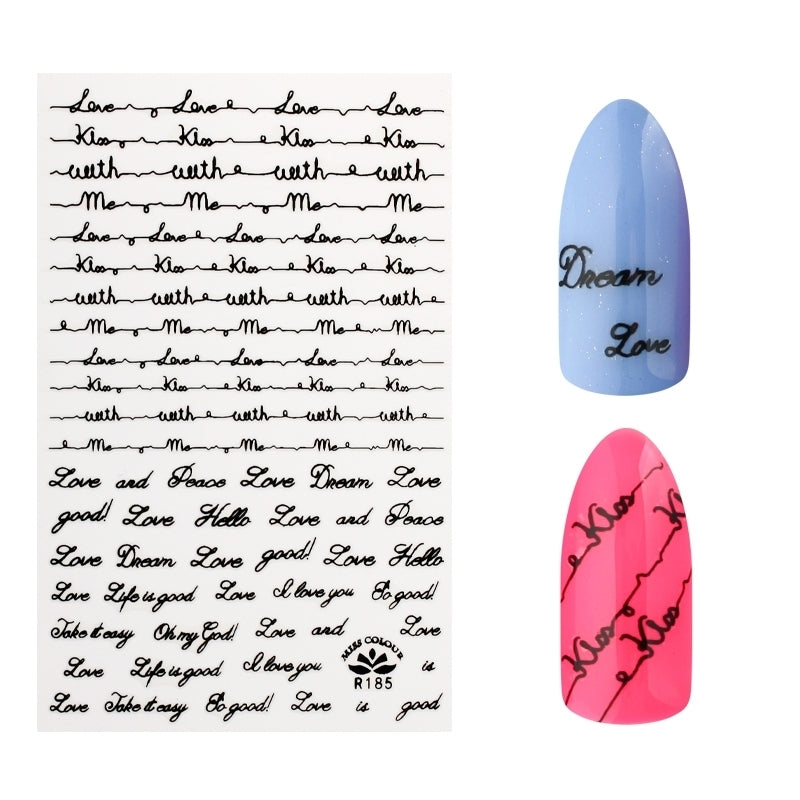 Love Love Love Love
Kiss Kiss Kiss Kiss
with with with with
Me Me Me Me
Love Love Love Love Love
Kiss Kiss Kiss Kiss Kiss
with with with with with
Me Me Me Me Me
Love Love Love Love Love
Kiss Kiss Kiss Kiss Kiss
with with with with with
Me Me Me Me Me
Love and Peace Love Dream Love
good! Love Hello Love and Peace
Love Dream Love good! Love Hello
Love Life is good Love I love you So good!
Take it easy Oh my God! Love and Love
Love Life is good I love you is
MISS COLOUR
R185
Love Take it easy So good! Love is good
Dream
Love
Kiss
Kiss
Kiss
Kiss